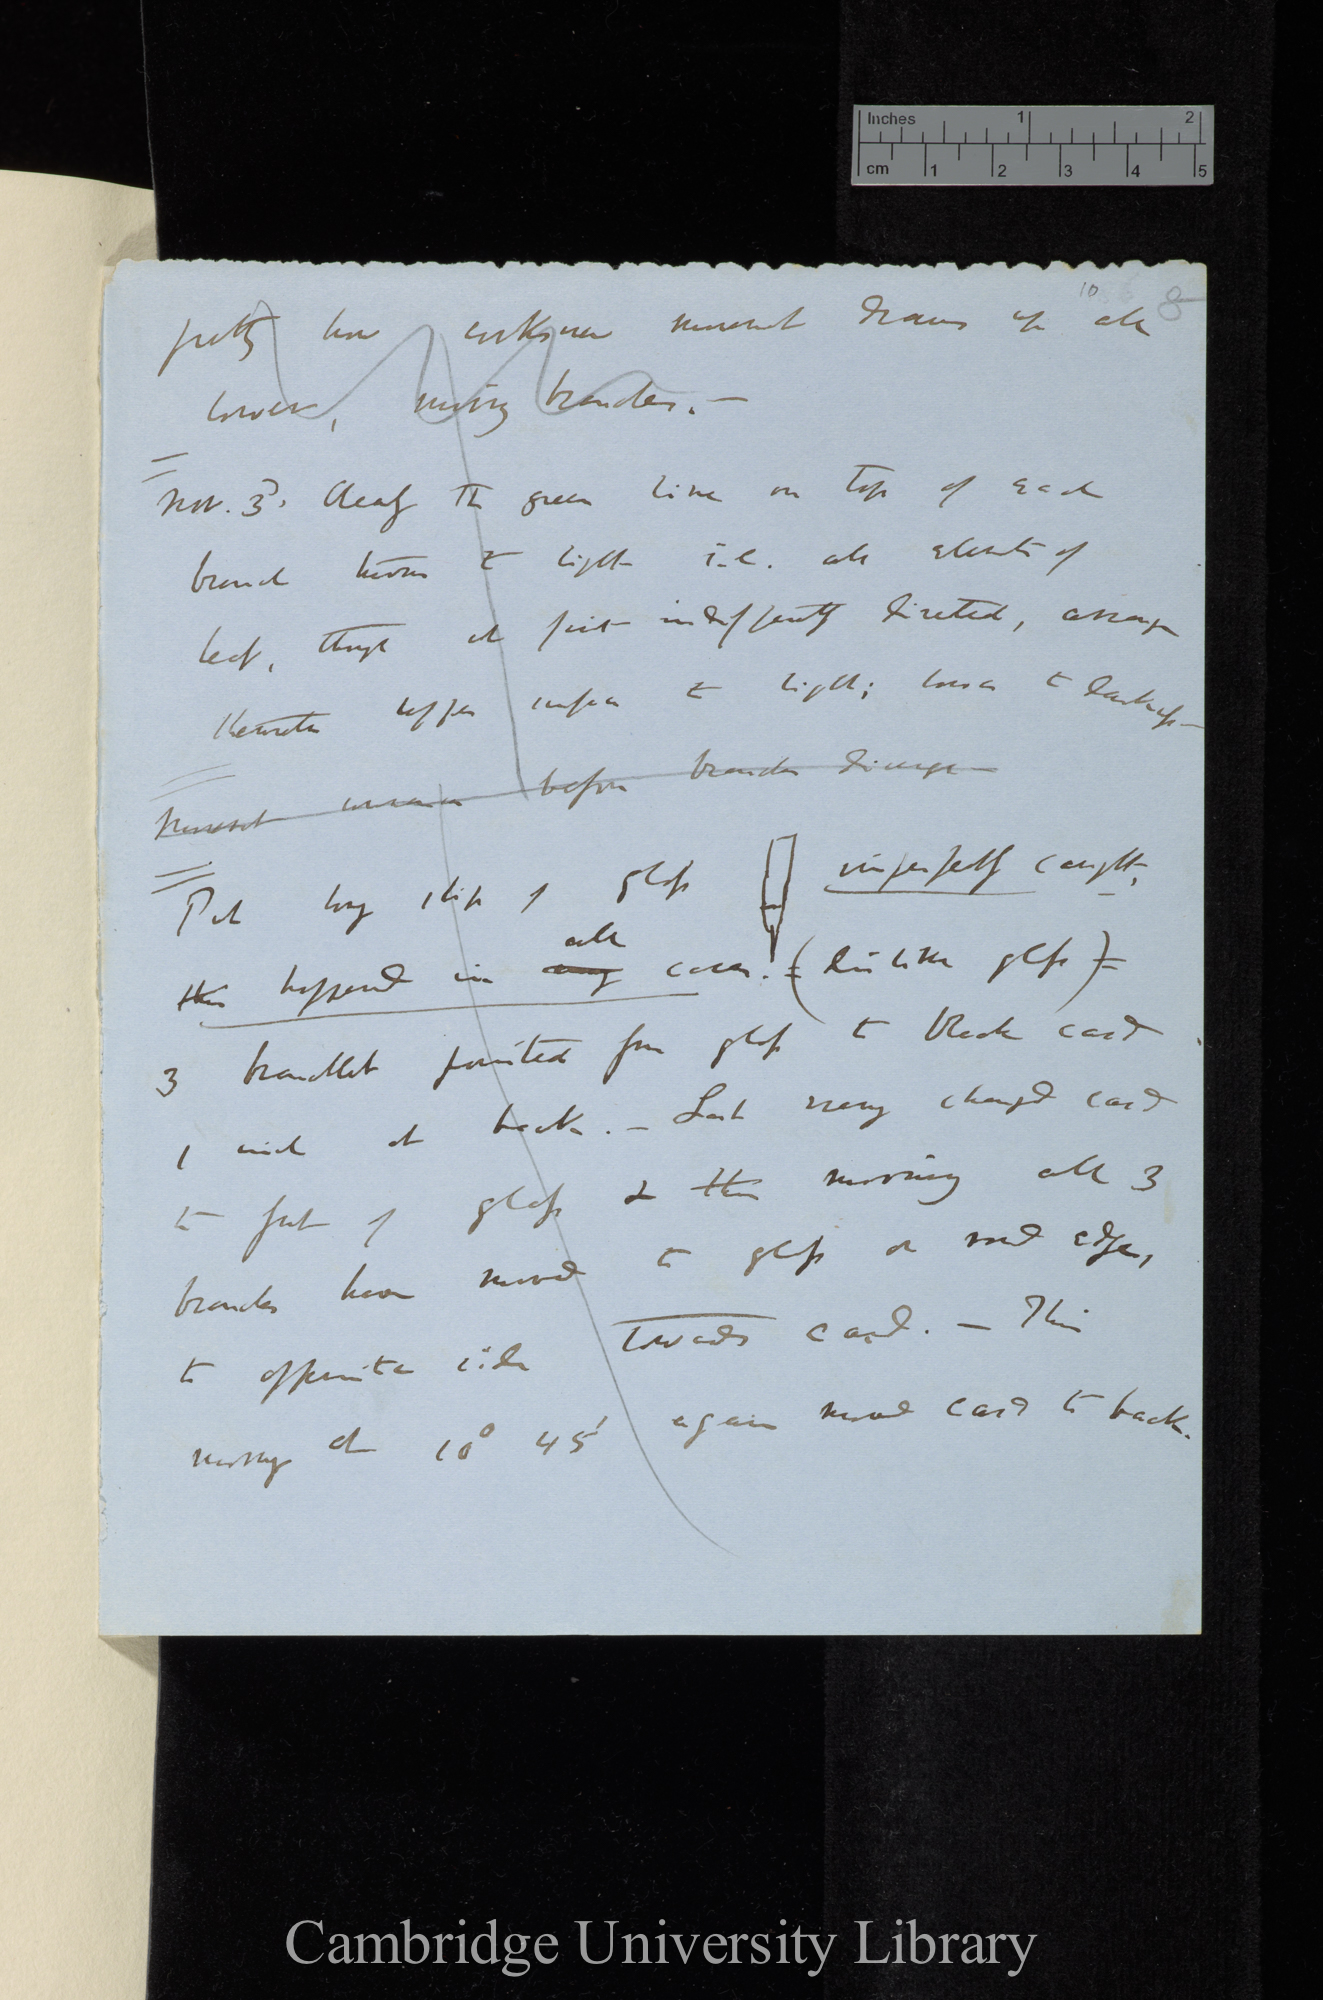 Inches 1 2
cm 1 2 3 4 5
10 8
pretty how corkscrew movement draws up all
lower, moving branches.—
Nov. 3d. Clearly the green line on top of each
branch turns to light i.e. all elements of
leaf, though at first indifferently directed, arrange
themselves upper surface to light; lower to darkness—
Movement commences before branches diverge—
Put long slip of glass imperfectly caught,
this happened in all cases. (dislike glass)
3 branchlets pointed from glass to black card
1 inch at back.— Last evening changed card
to front of glass & this morning all 3
branches have moved to glass or round edges,
to opposite side towards card.— This
morning at 10° 45' again moved card to back.
Cambridge University Library